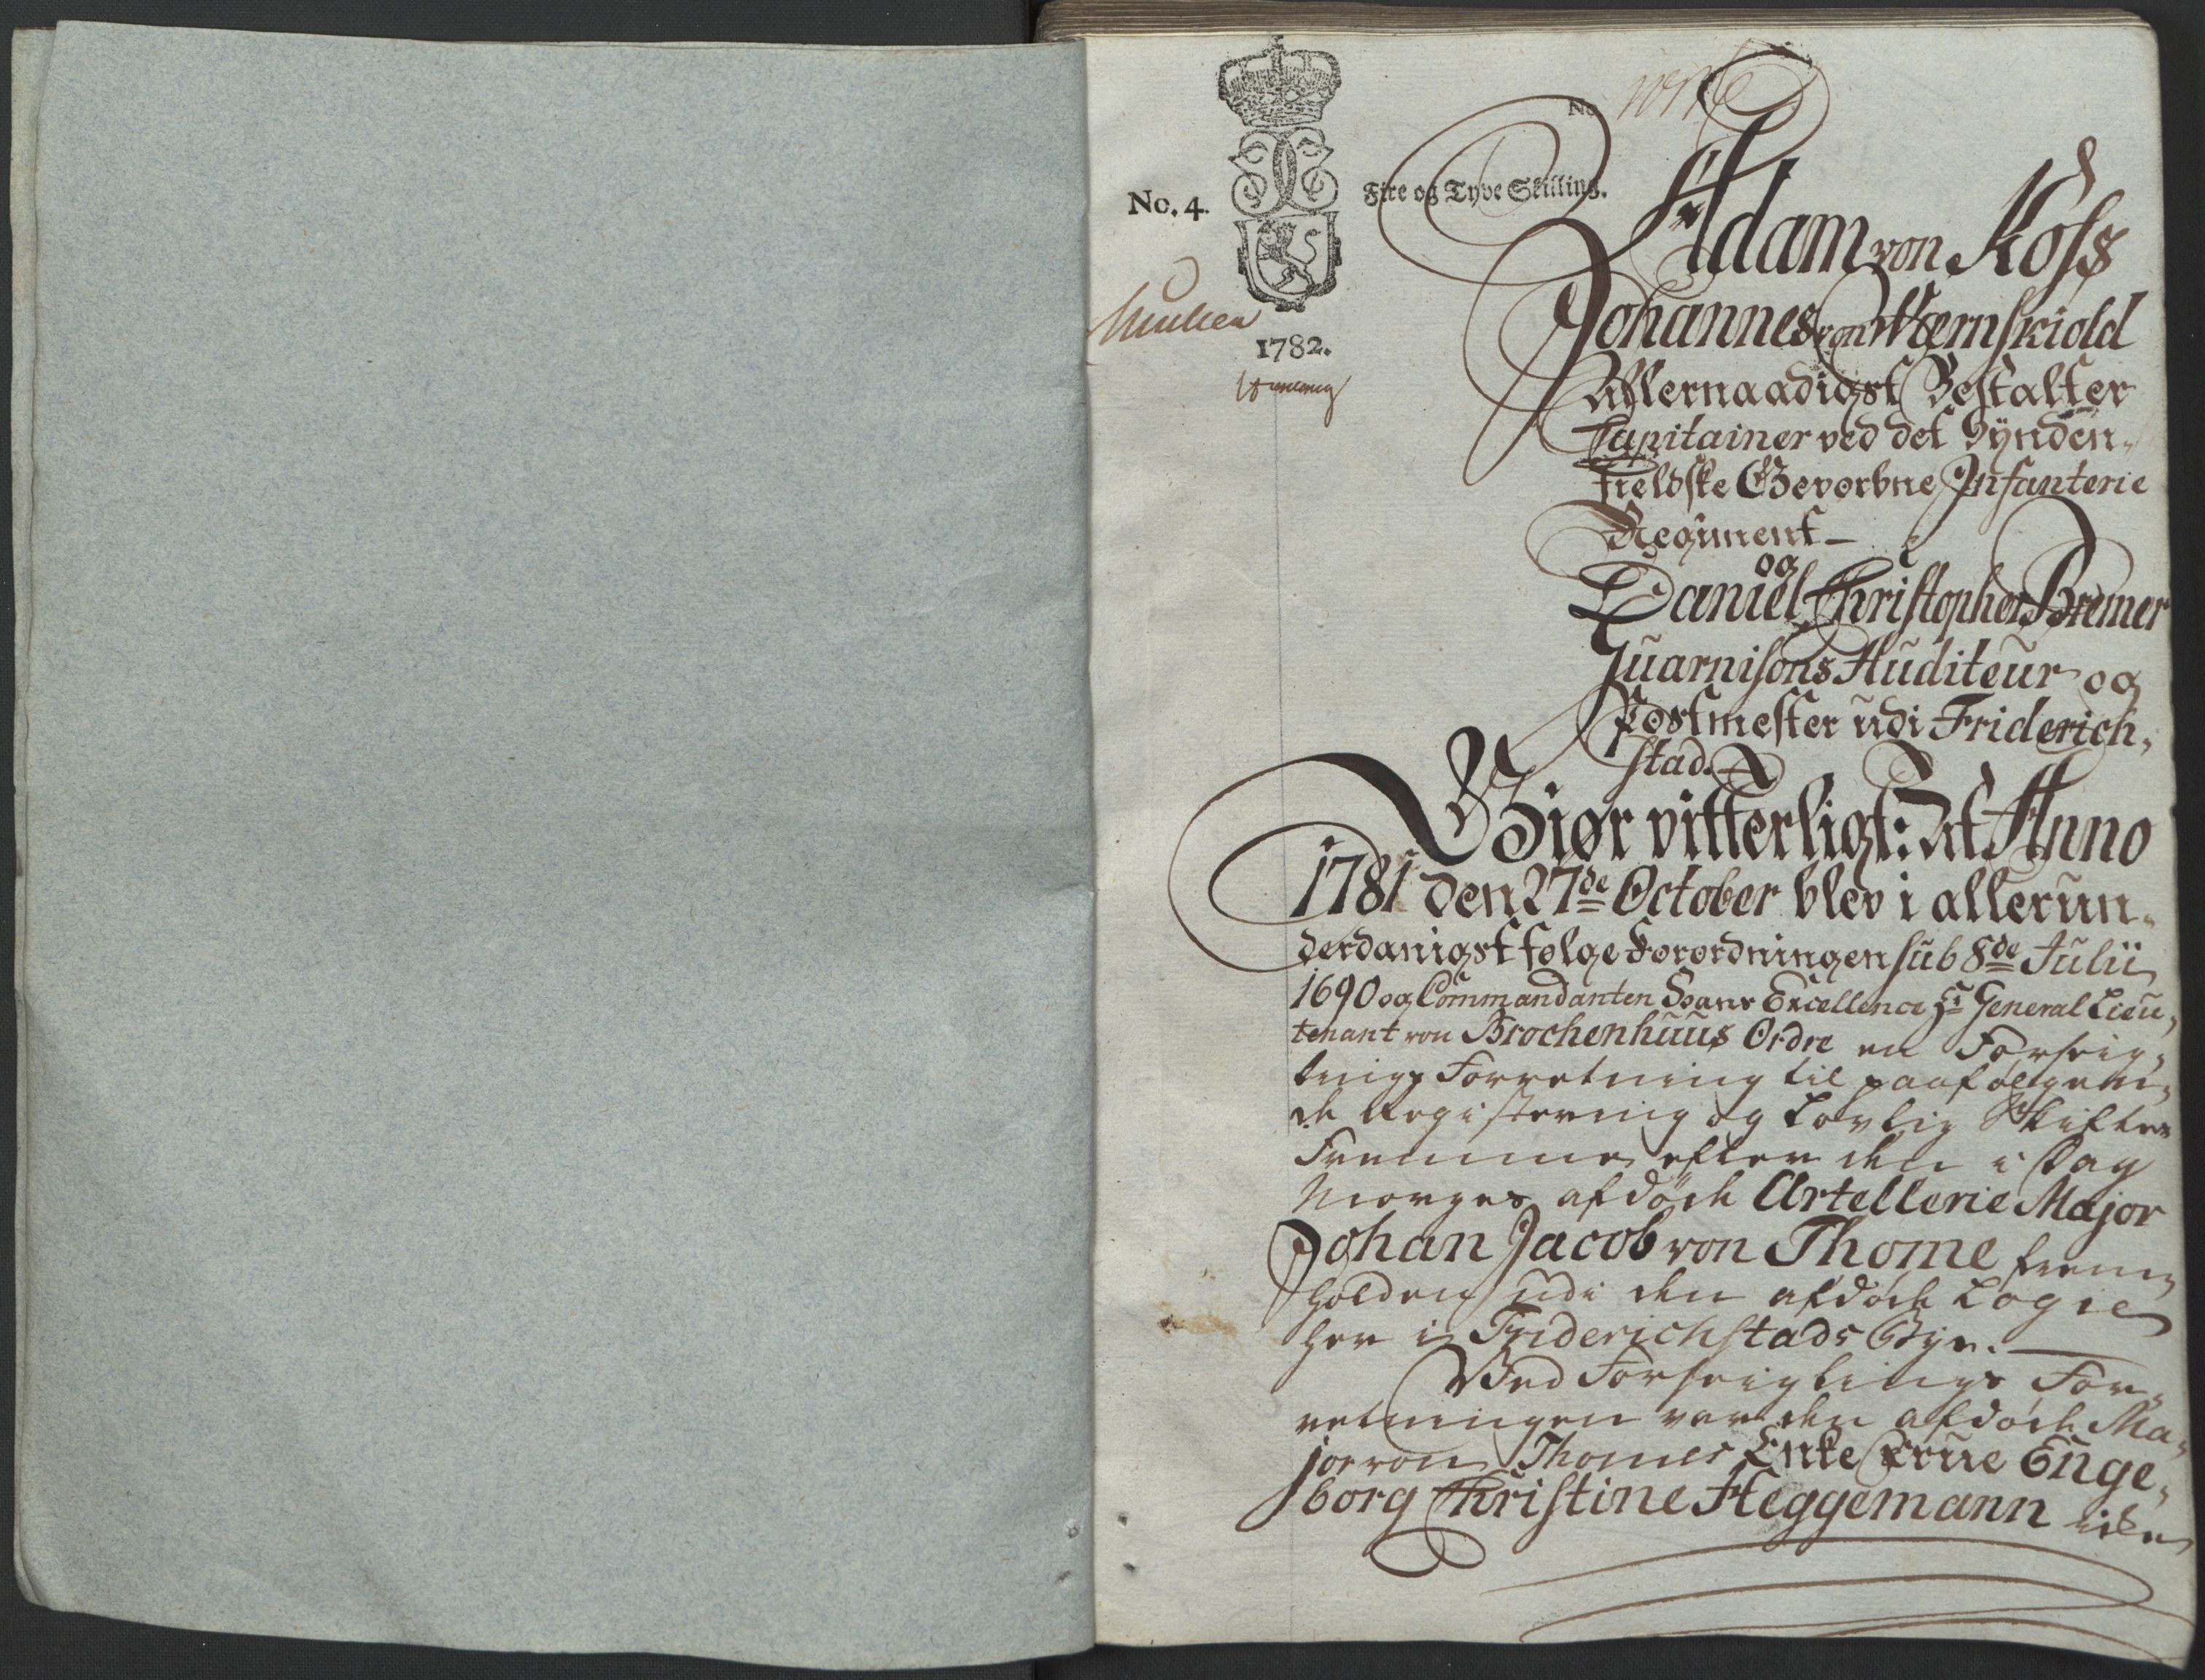 No.
No. 4.
Fire og Tyve Skilling.
1782.
Adam von Koss
Johannes von Wernskiold
Allernaadigst Bestalter
Capitainer ved det Synden-
fieldske Gevorbne Infanterie
Regiment-
og
Daniel Christopher Bremer
Guarnisons Auditeur og
Postmester udi Friderich-
stad.
Giør vitterligt: At Anno
1781 den 27de October blev i allerun-
derdanigst følge Forordningen sub 8de Julii
1690 og Commandanten Hans Excellence Hr General Lieu-
tenant von Brochenhuus Ordre en Forseig-
lings Forretning til paafølgen-
de Registering og Lovlig Skiftes
Fremme efter den i Dag
Morges afdøde Artellerie Major
Johan Jacob von Thome frem-
holden udi den afdødes Logie
her i Friderichstads Bye.
Ved Forseiglings For-
retningen var den afdøde Ma-
jor von Thomes Enke Frue Enge-
borg Christine Heggemann